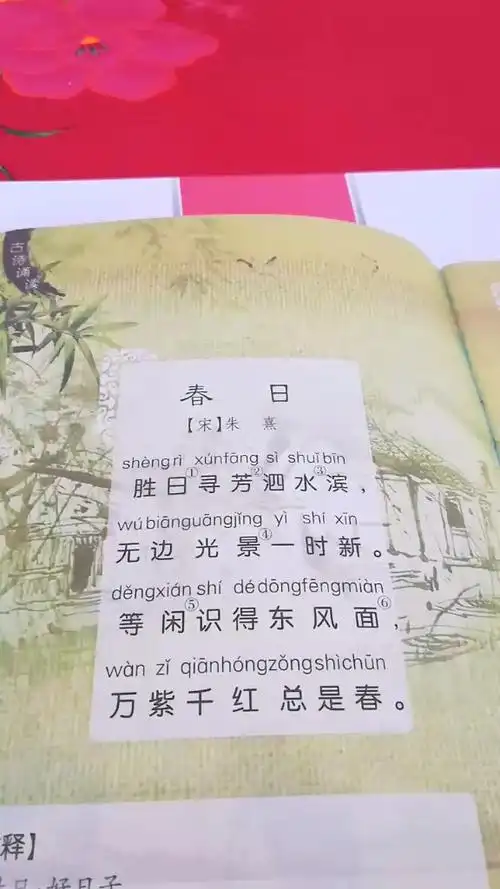 古诗诵读
春 日
【宋】朱 熹
shèngrì xúnfāng sì shuǐbīn
胜日①寻芳②泗水③滨，
wúbiānguāngjǐng yì shí xīn
无边光景④一时新。
děngxián shí dédōngfēngmiàn
等闲⑤识得东风面⑥，
wàn zǐ qiānhóngzǒngshìchūn
万紫千红总是春。
释】
日：好日子